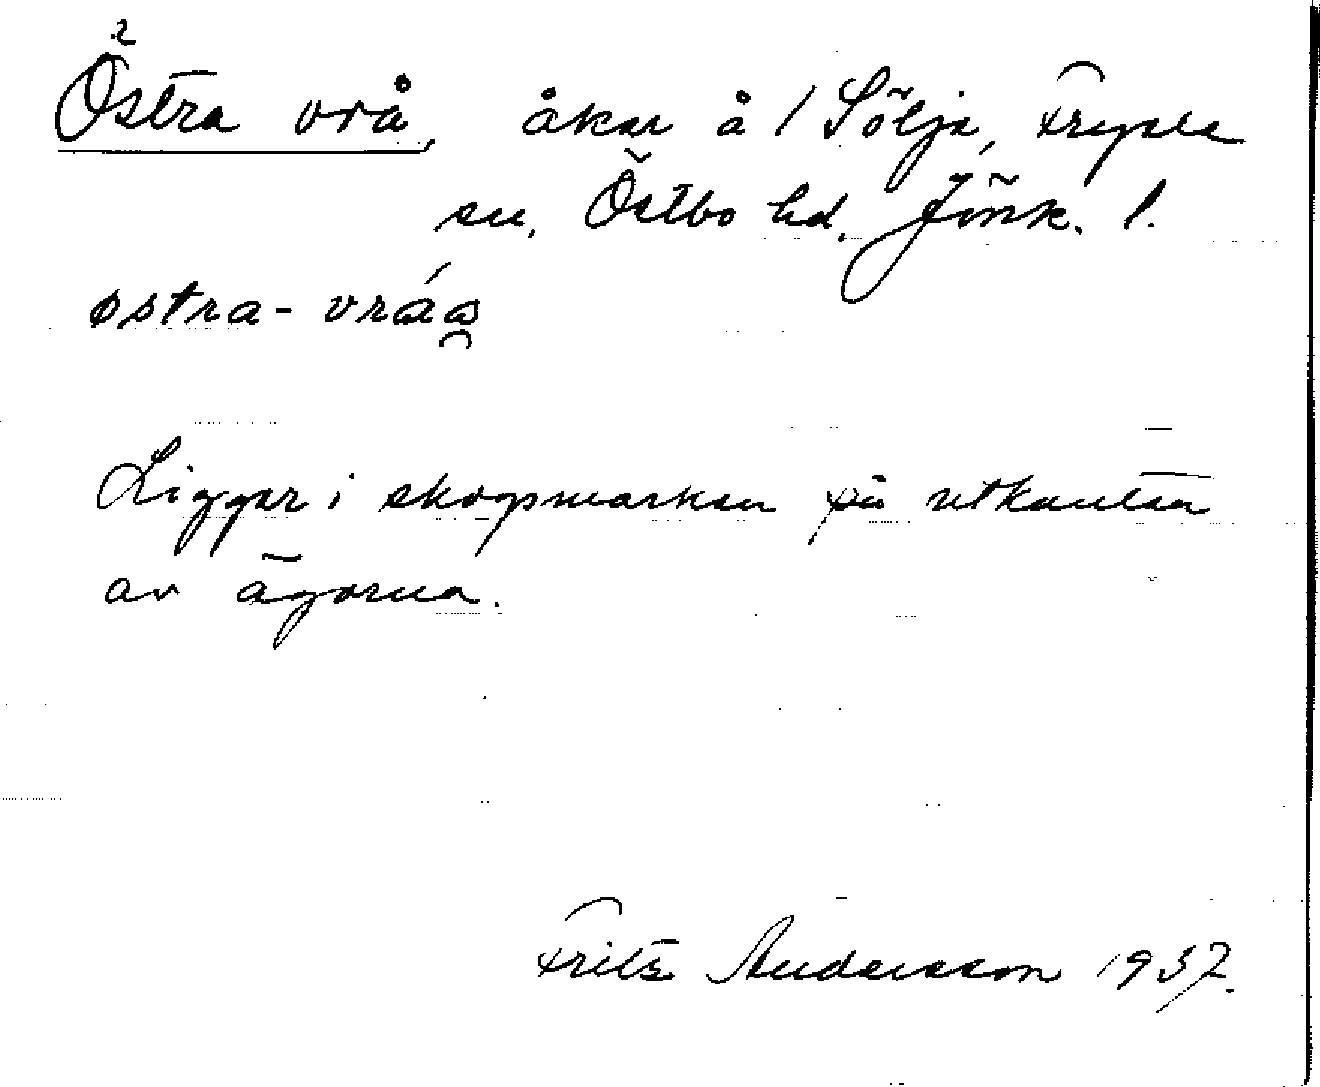 2
Östra vrå, åker å 1 Sölje, Fryele
sn, Östbo hd, Jönk. l.
østra- vráa
Ligger i skogsmarken på utkanten
av ägorna.
Fritz Andersson 1937.